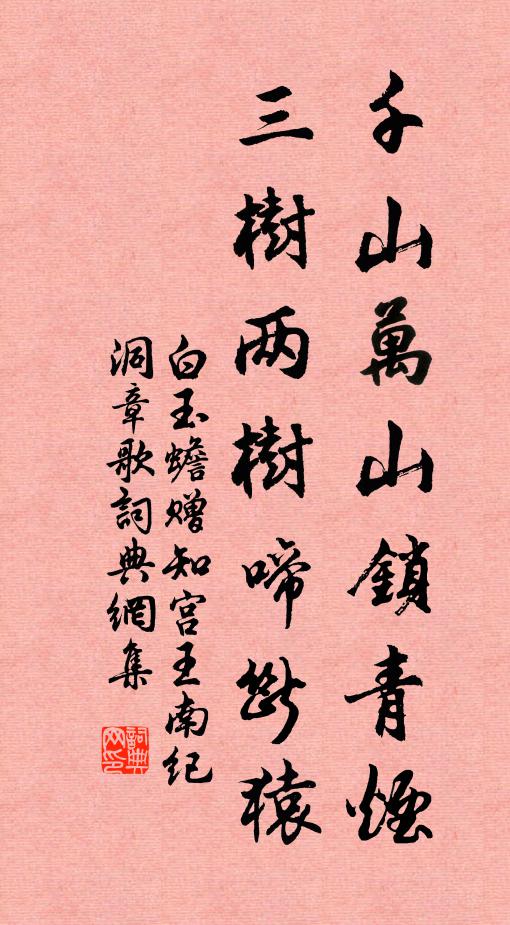 千山萬山鎖青煙
三樹两樹啼斷猿
白玉蟾赠知宫王南纪
洞章歌詞典網集
詞典网印